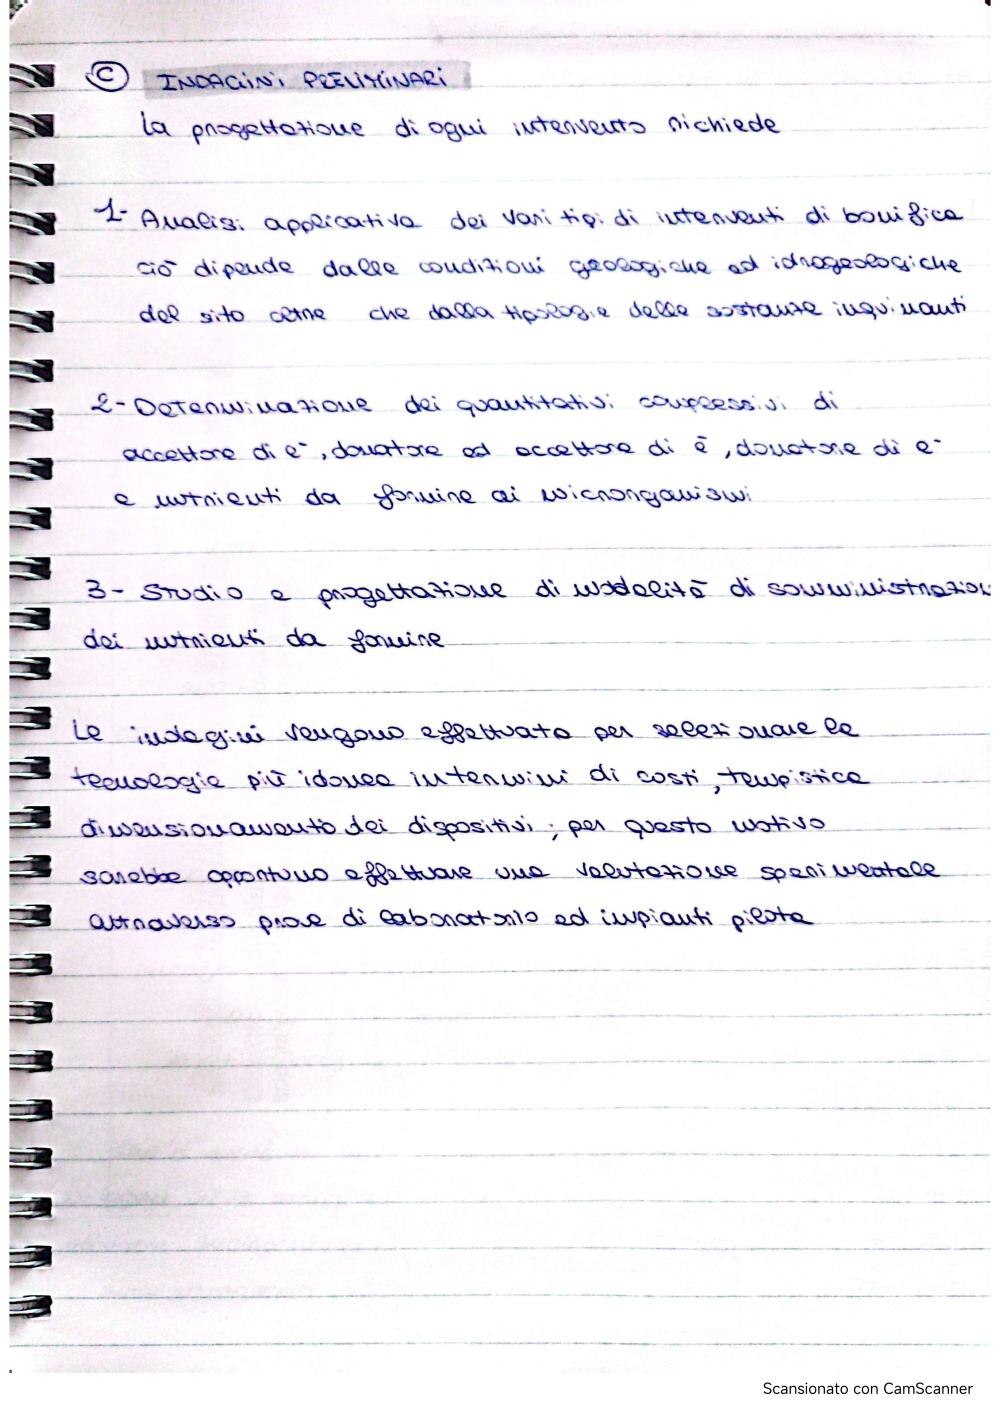 C INDAGINI PRELIMINARI
La progettazione di ogni intervento richiede
1- Analisi applicativa dei vari tipi di interventi di bonifica
ciò dipende dalle condizioni geologiche ed idrogeologiche
del sito oltre che dalla tipologie delle sostanze inquinanti
2- Determinazione dei quantitativi complessivi di
accettore di e⁻, donatore ed accettore di e⁻, donatore di e⁻
e nutrienti da fornire ai microrganismi
3- Studio e progettazione di modalità di somministrazion
dei nutrienti da fornire
Le indagini vengono effettuate per selezionare le
tecnologie più idonee in termini di costi, tempistica
dimensionamento dei dispositivi; per questo motivo
sarebbe opportuno effettuare una valutazione sperimentale
attraverso prove di laboratorio ed impianti pilota
Scansionato con CamScanner